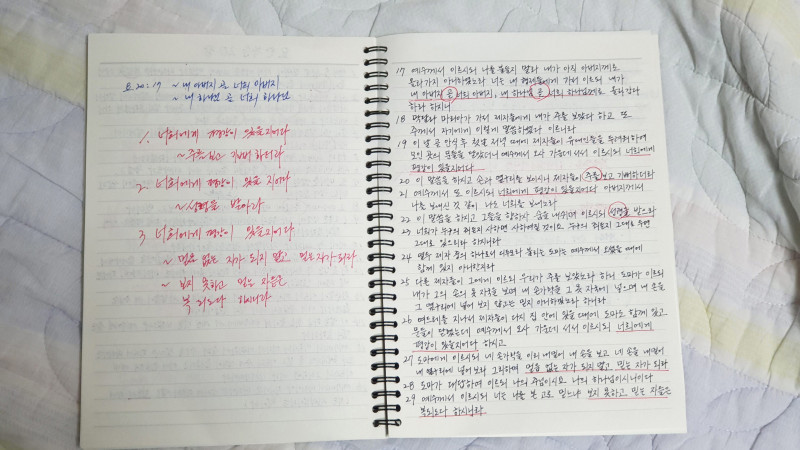 요 20:17 ~ 내 아버지 곧 너희 아버지
~ 내 하나님 곧 너희 하나님
1. 너희에게 평강이 있을지어다
~ 주를 보고 기뻐하더라
2. 너희에게 평강이 있을지어다
~ 성령을 받아라
3. 너희에게 평강이 있을지어다
~ 믿음 없는 자가 되지 말고 믿는 자가 되라
~ 보지 못하고 믿는 자들은
복 되도다 하시니라
17 예수께서 이르시되 나를 붙들지 말라 내가 아직 아버지께로
올라가지 아니하였노라 너는 내 형제들에게 가서 이르되 내가
내 아버지 곧 너희 아버지, 내 하나님 곧 너희 하나님께로 올라간다
하라 하시니
18 막달라 마리아가 가서 제자들에게 내가 주를 보았다 하고 또
주께서 자기에게 이렇게 말씀하셨다 이르니라
19 이 날 곧 안식 후 첫날 저녁 때에 제자들이 유대인들을 두려워하여
모인 곳의 문들을 닫았더니 예수께서 오사 가운데 서서 이르시되 너희에게
평강이 있을지어다
20 이 말씀을 하시고 손과 옆구리를 보이시니 제자들이 주를 보고 기뻐하더라
21 예수께서 또 이르시되 너희에게 평강이 있을지어다 아버지께서
나를 보내신 것 같이 나도 너희를 보내노라
22 이 말씀을 하시고 그들을 향하사 숨을 내쉬며 이르시되 성령을 받으라
23 너희가 누구의 죄든지 사하면 사하여질 것이요 누구의 죄든지 그대로 두면
그대로 있으리라 하시니라
24 열두 제자 중의 하나로서 디두모라 불리는 도마는 예수께서 오셨을 때에
함께 있지 아니한지라
25 다른 제자들이 그에게 이르되 우리가 주를 보았노라 하니 도마가 이르되
내가 그의 손의 못 자국을 보며 내 손가락을 그 못 자국에 넣으며 내 손을
그 옆구리에 넣어 보지 않고는 믿지 아니하겠노라 하니라
26 여드레를 지나서 제자들이 다시 집 안에 있을 때에 도마도 함께 있고
문들이 닫혔는데 예수께서 오사 가운데 서서 이르시되 너희에게
평강이 있을지어다 하시고
27 도마에게 이르시되 네 손가락을 이리 내밀어 내 손을 보고 네 손을 내밀어
내 옆구리에 넣어 보라 그리하여 믿음 없는 자가 되지 말고 믿는 자가 되라
28 도마가 대답하여 이르되 나의 주님이시요 나의 하나님이시니이다
29 예수께서 이르시되 너는 나를 본 고로 믿느냐 보지 못하고 믿는 자들은
복되도다 하시니라